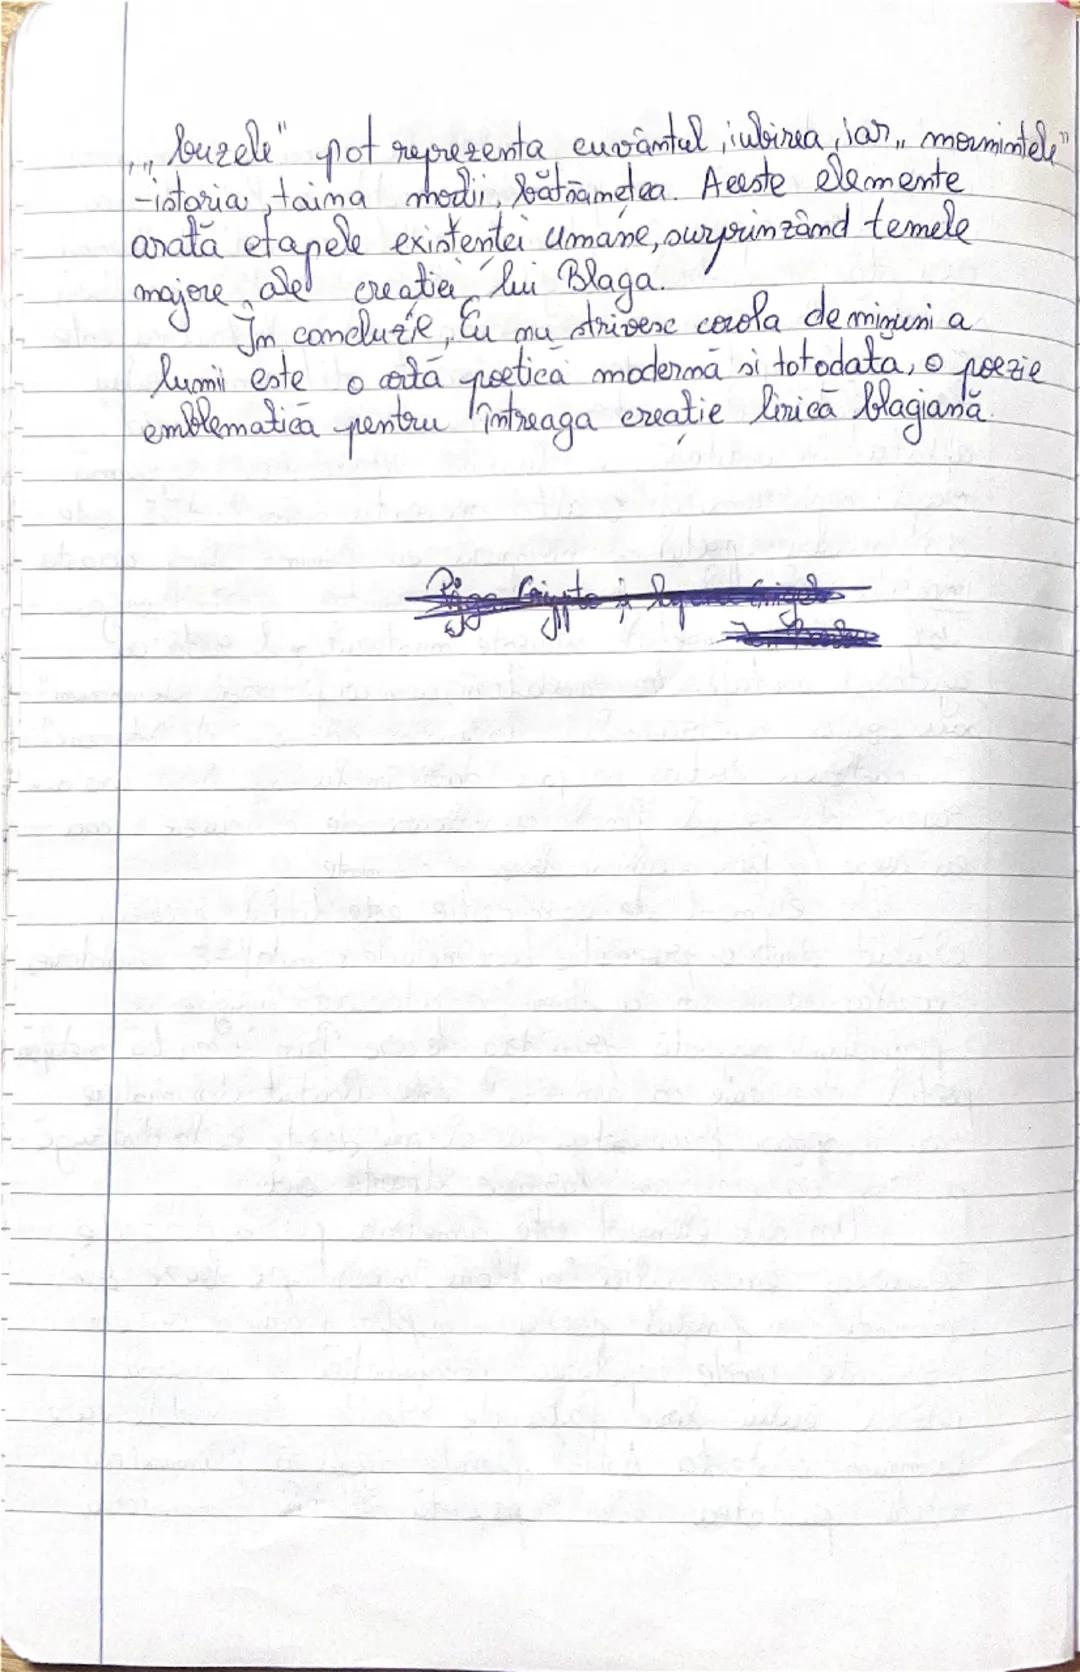 ,„buzele" pot reprezenta cuvântul, iubirea, iar „mormintele"
-istoria, taima morții, bătrâmețea. Aceste elemente
arată etapele existenței umane, surprinzând temele
majore ale creației lui Blaga.
Im concluzie, „Eu nu strivesc corola de minuni a
lumii este o artă poetică modernă si totodată, o poezie
emblematică pentru întreaga creație lirică blagiană.
Riga Crypto și lapona Enigel
Ion Barbu